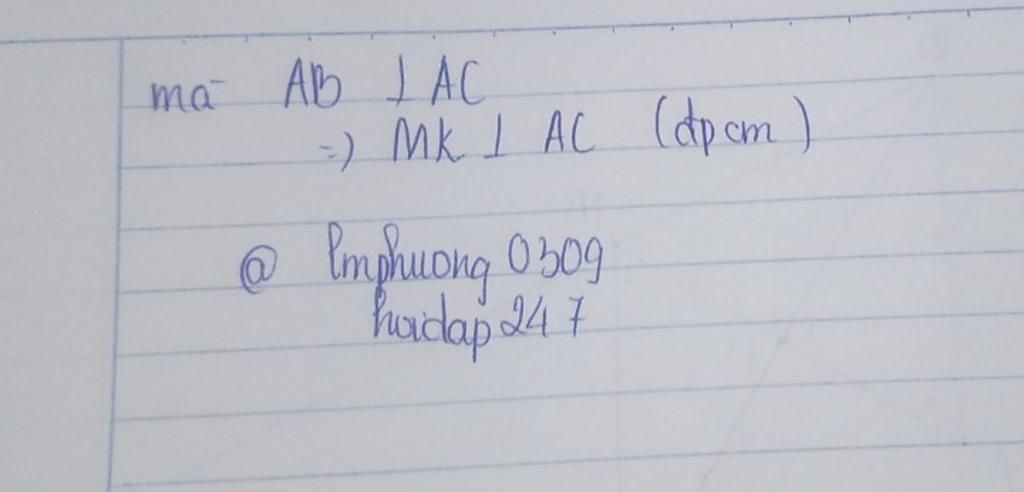 mà AB ⊥ AC
=) MK ⊥ AC (đpcm)
@ lmphuong0309
hoidap247